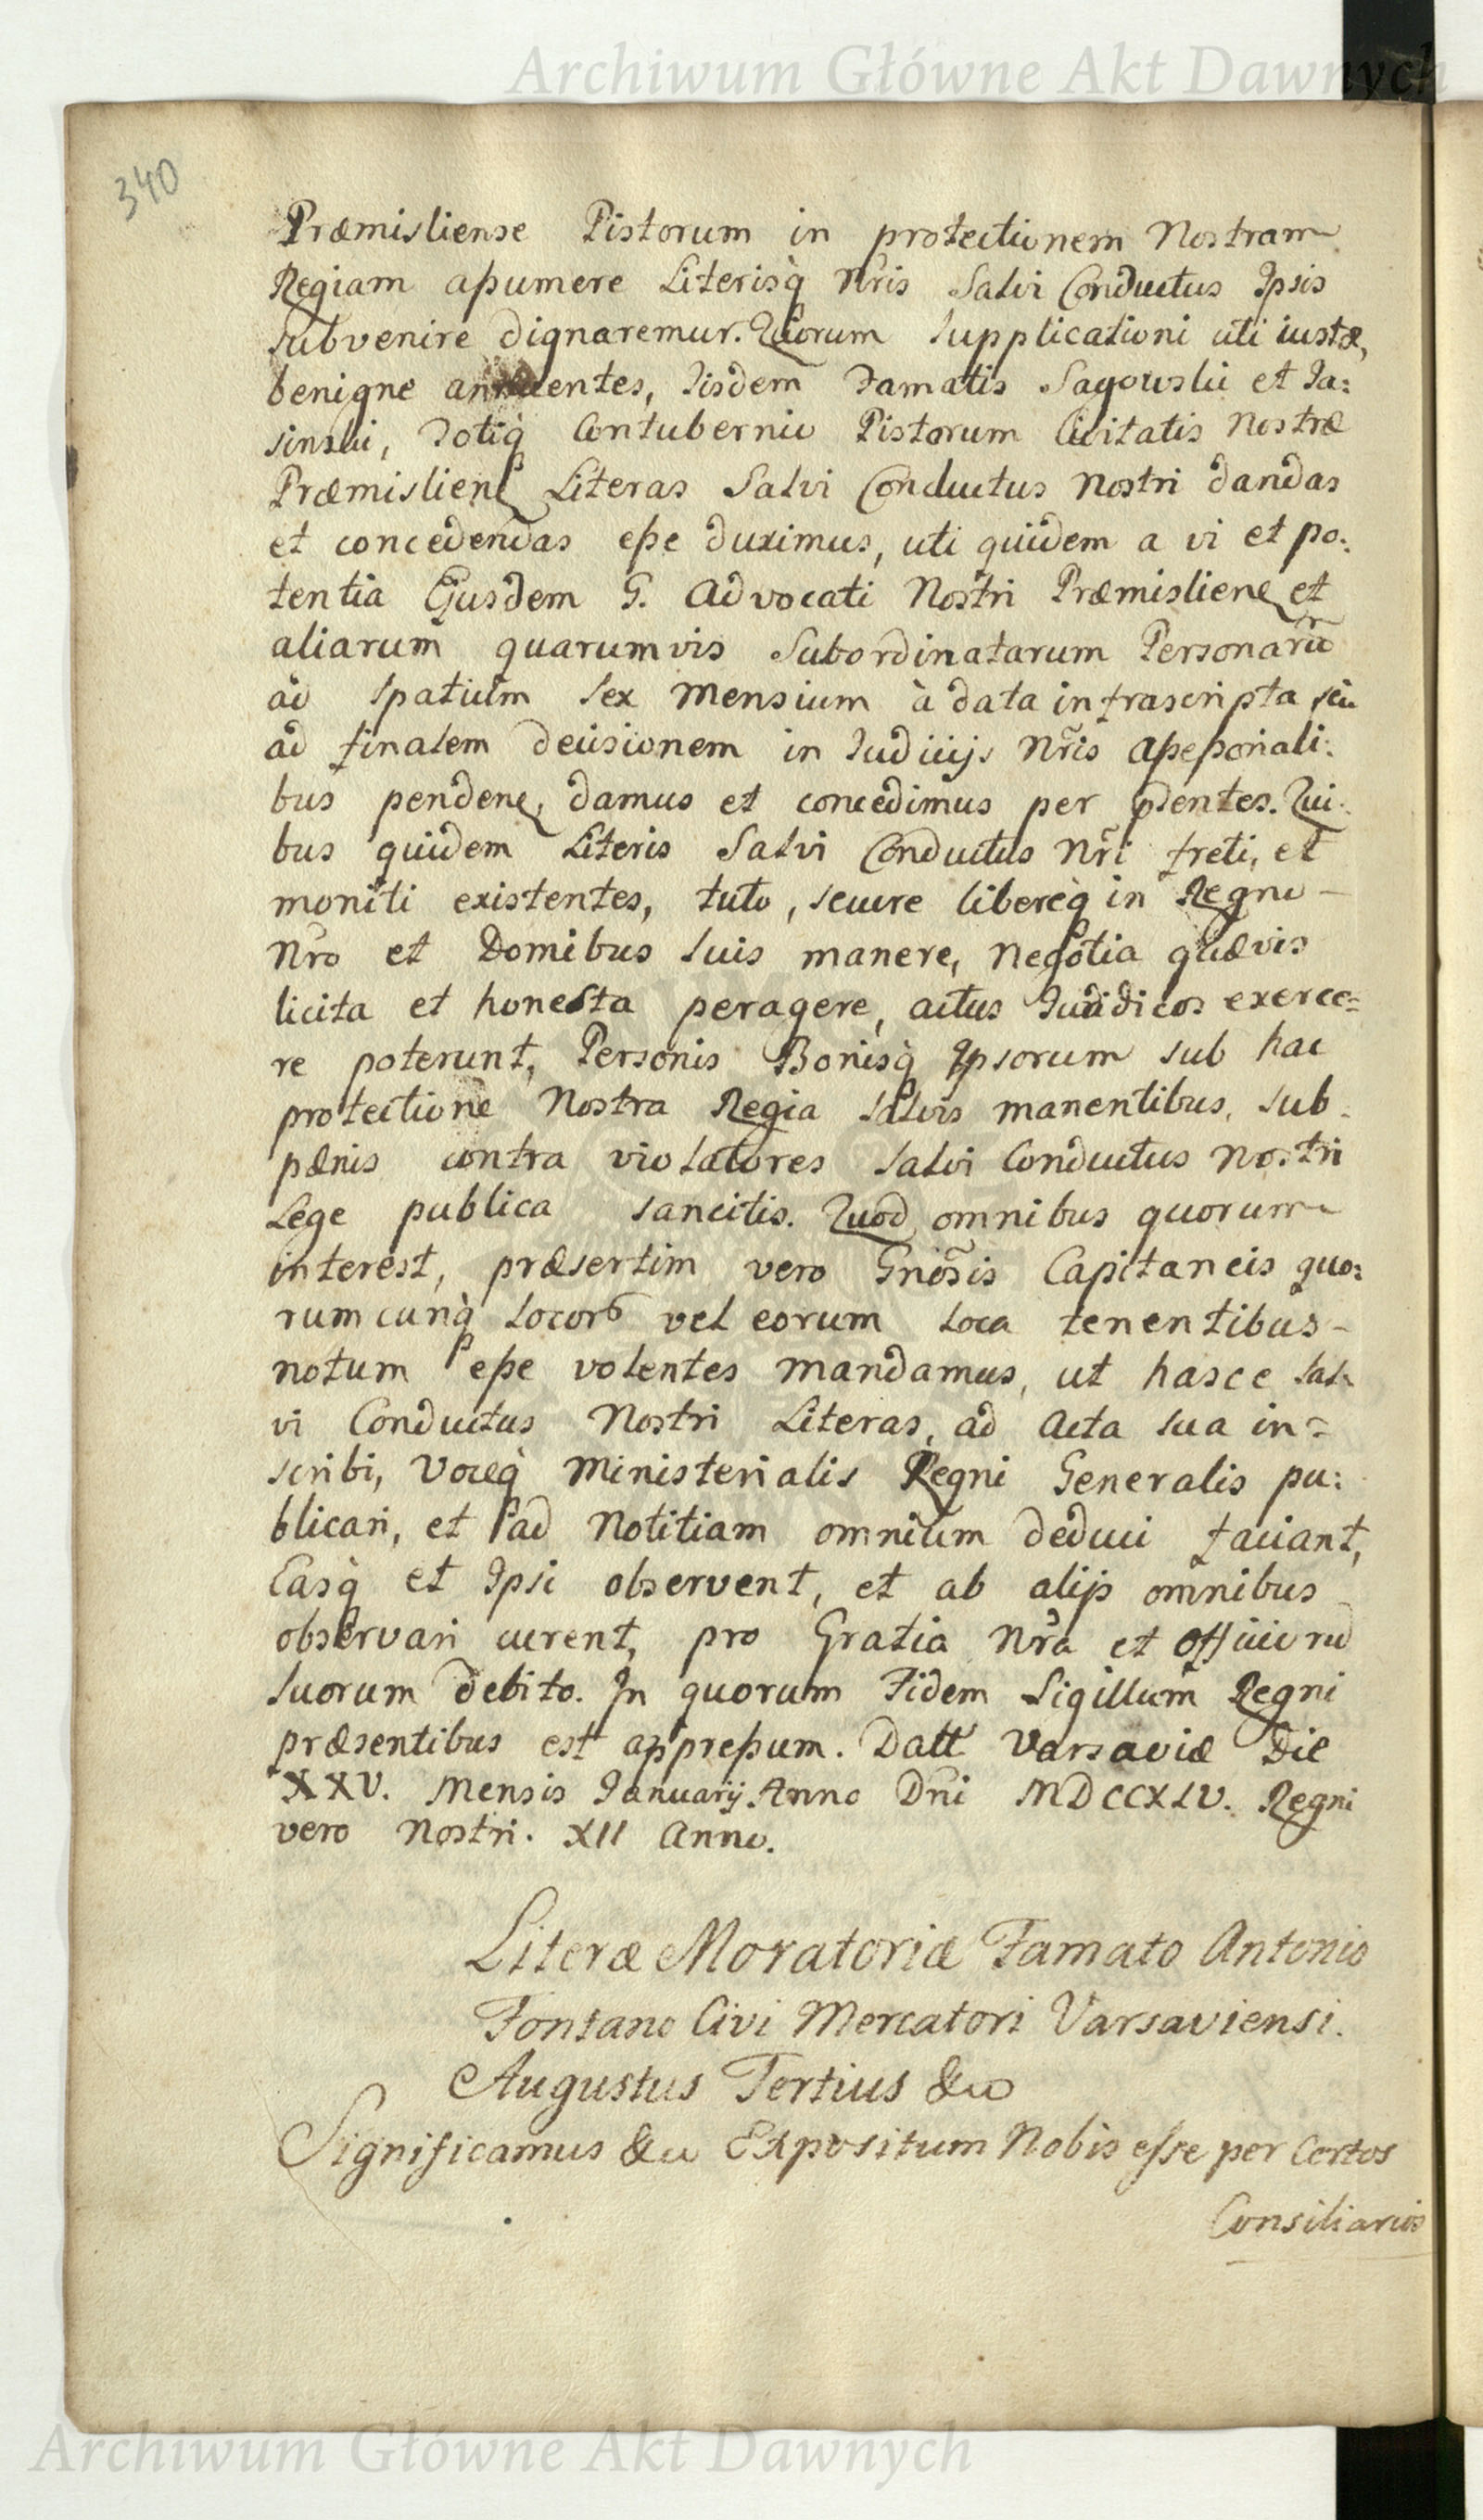 Archiwum Główne Akt Dawnych
340
Præmisliense Pistorum in protectionem Nostram
Regiam assumere Literisq̀ Nr̃is Salvi Conductus Ipsis
subvenire dignaremur. Quorum supplicationi uti iustæ,
benigne annuentes, Iisdem Famatis Sagowski et Ja:
sinski, Totiq̀ Contubernio Pistorum Civitatis Nostræ
Præmislien Literas Salvi Conductus Nostri dandas
et concedendas esse duximus, uti quidem a vi et po:
tentia Ejusdem G. Advocati Nostri Præmislien et
aliarum quarumvis Subordinatarum Personarũ
ad spatium sex Mensium à data infrascripta seu
ad finalem decisionem in Iudicijs Nr̃is Assessoriali:
bus penden, damus et concedimus per p̃sentes. Qui:
bus quidem Literis Salvi Conductus Nr̃i freti, et
moniti existentes, tuto, secure libereq̀ in Regno
Nr̃o et Domibus suis manere, Negotia quævis
licita et honesta peragere, actus Iuridicos exerce=
re poterunt, Personis Bonisq̀ Ipsorum sub hac
protectione Nostra Regia salvis manentibus, sub
pœnis contra violatores salvi Conductus Nostri
Lege publica sancitis. Quod omnibus quorum
interest, præsertim vero Gnõsis Capitaneis quo:
rumcunq̀ locor vel eorum loca tenentibus
notum esse volentes mandamus, ut hasce Sal:
vi Conductus Nostri Literas, ad Acta sua in=
scribi, Voceq̀ Ministerialis Regni Generalis pu:
blicari, et ad Notitiam omnium deduci faciant,
Easq̀ et Ipsi observent, et ab alijs omnibus
observari curent, pro Gratia Nr̃a et Officiorũ
suorum debito. In quorum Fidem Sigillum Regni
præsentibus est appressum. Datt Varsaviæ Die
XXV. Mensis Ianuarij Anno Dn̄i MDCCXLV. Regni
vero Nostri. XII Anno.
Literæ Moratoriæ Famato Antonio
Fontano Civi Mercatori Varsaviensi.
Augustus Tertius &c
Significamus &c Expositum Nobis esse per Certos
Consiliarios
Archiwum Główne Akt Dawnych